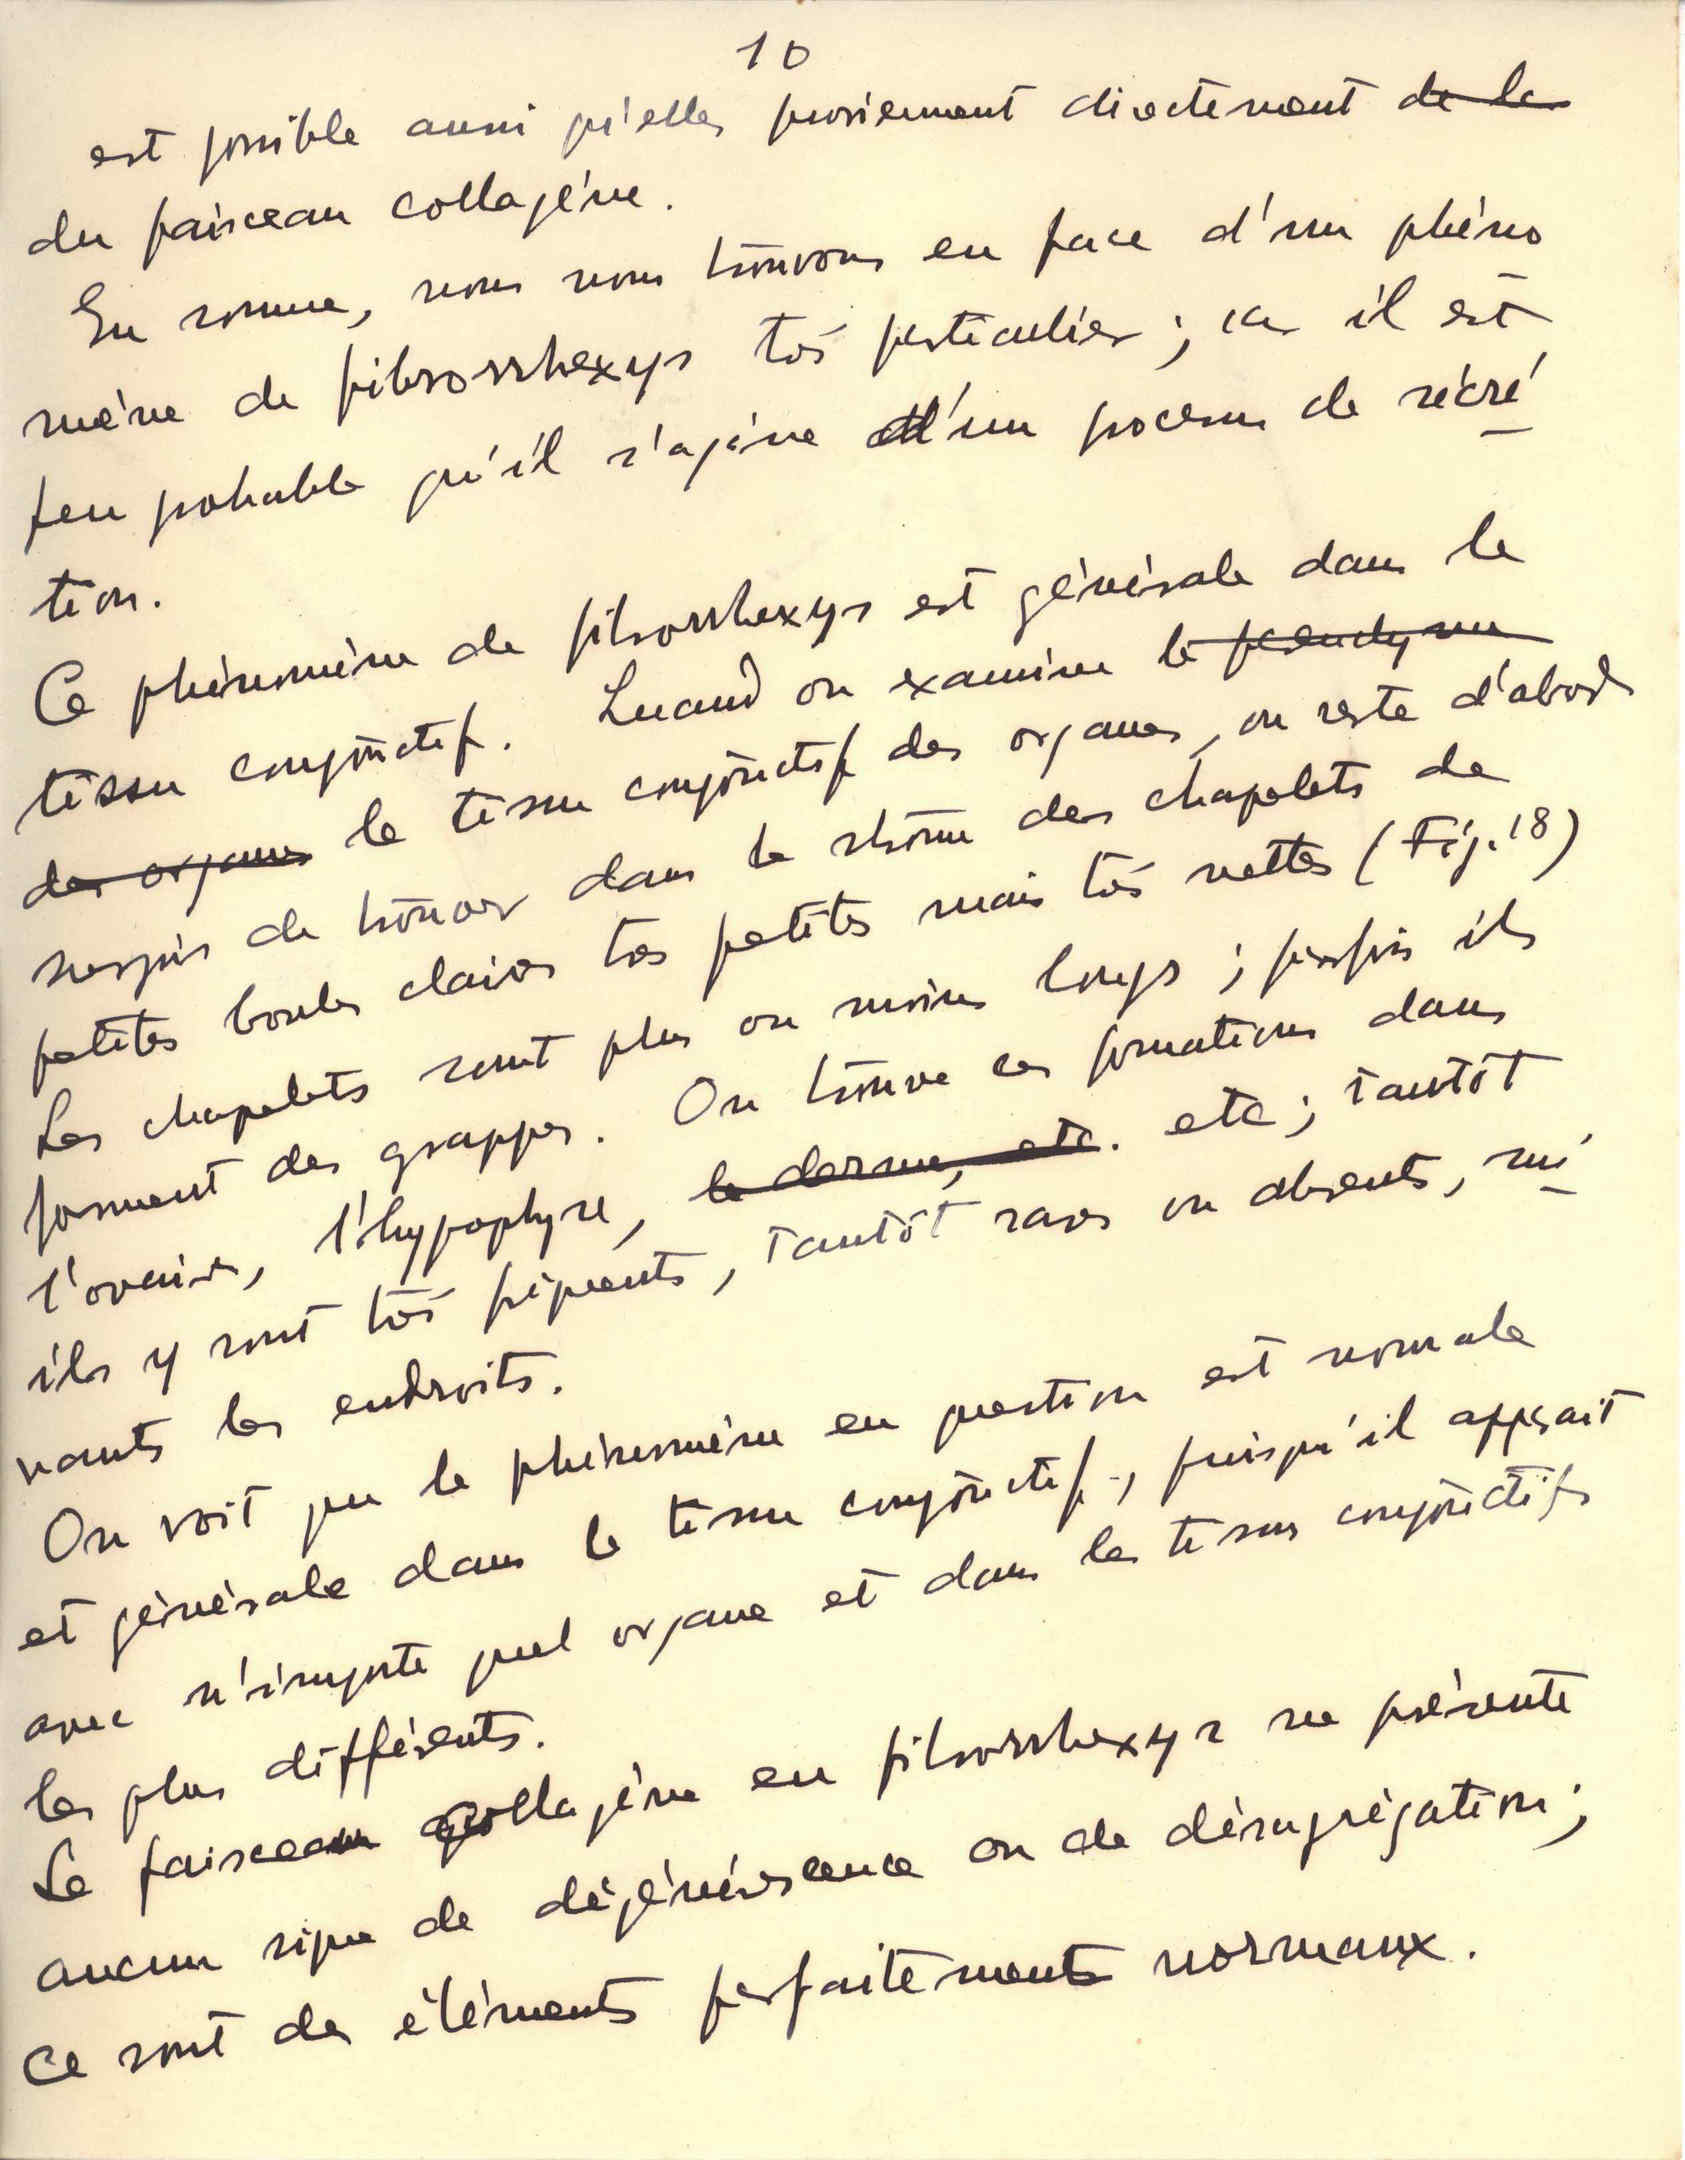 10
est possible aussi qu'elles proviennent directement de la
du faisceau collagène.
En somme, nous nous trouvons en face d'un phéno
mène de fibrorrhexys très particulier ; car il est
peu probable qu'il s'agisse d'un processus de sécré
tion.
Ce phénomène de fibrorrhexys est générale dans le
tissu conjonctif. Quand on examine le parenchyme
des organes le tissu conjonctif des organes, on reste d'abord
surpris de trouver dans le stroma des chapelets de
petites boules claires très petites mais très nettes (Fig. 18)
Les chapelets sont plus ou moins longs ; parfois ils
forment des grappes. On trouve ces formations dans
l'ovaire, l'hypophyse, le derme, etc. etc ; tantôt
ils y sont très fréquents, tantôt rares ou absents, sui
vants les endroits.
On voit que le phénomène en question est normale
et générale dans le tissu conjonctif, puisqu'il apparait
avec n'importe quel organe et dans les tissus conjonctifs
les plus différents.
Le faisceau collagène en fibrorrhexys ne présente
aucun signe de dégénérescence ou de désagrégation ;
ce sont des éléments parfaitements normaux.